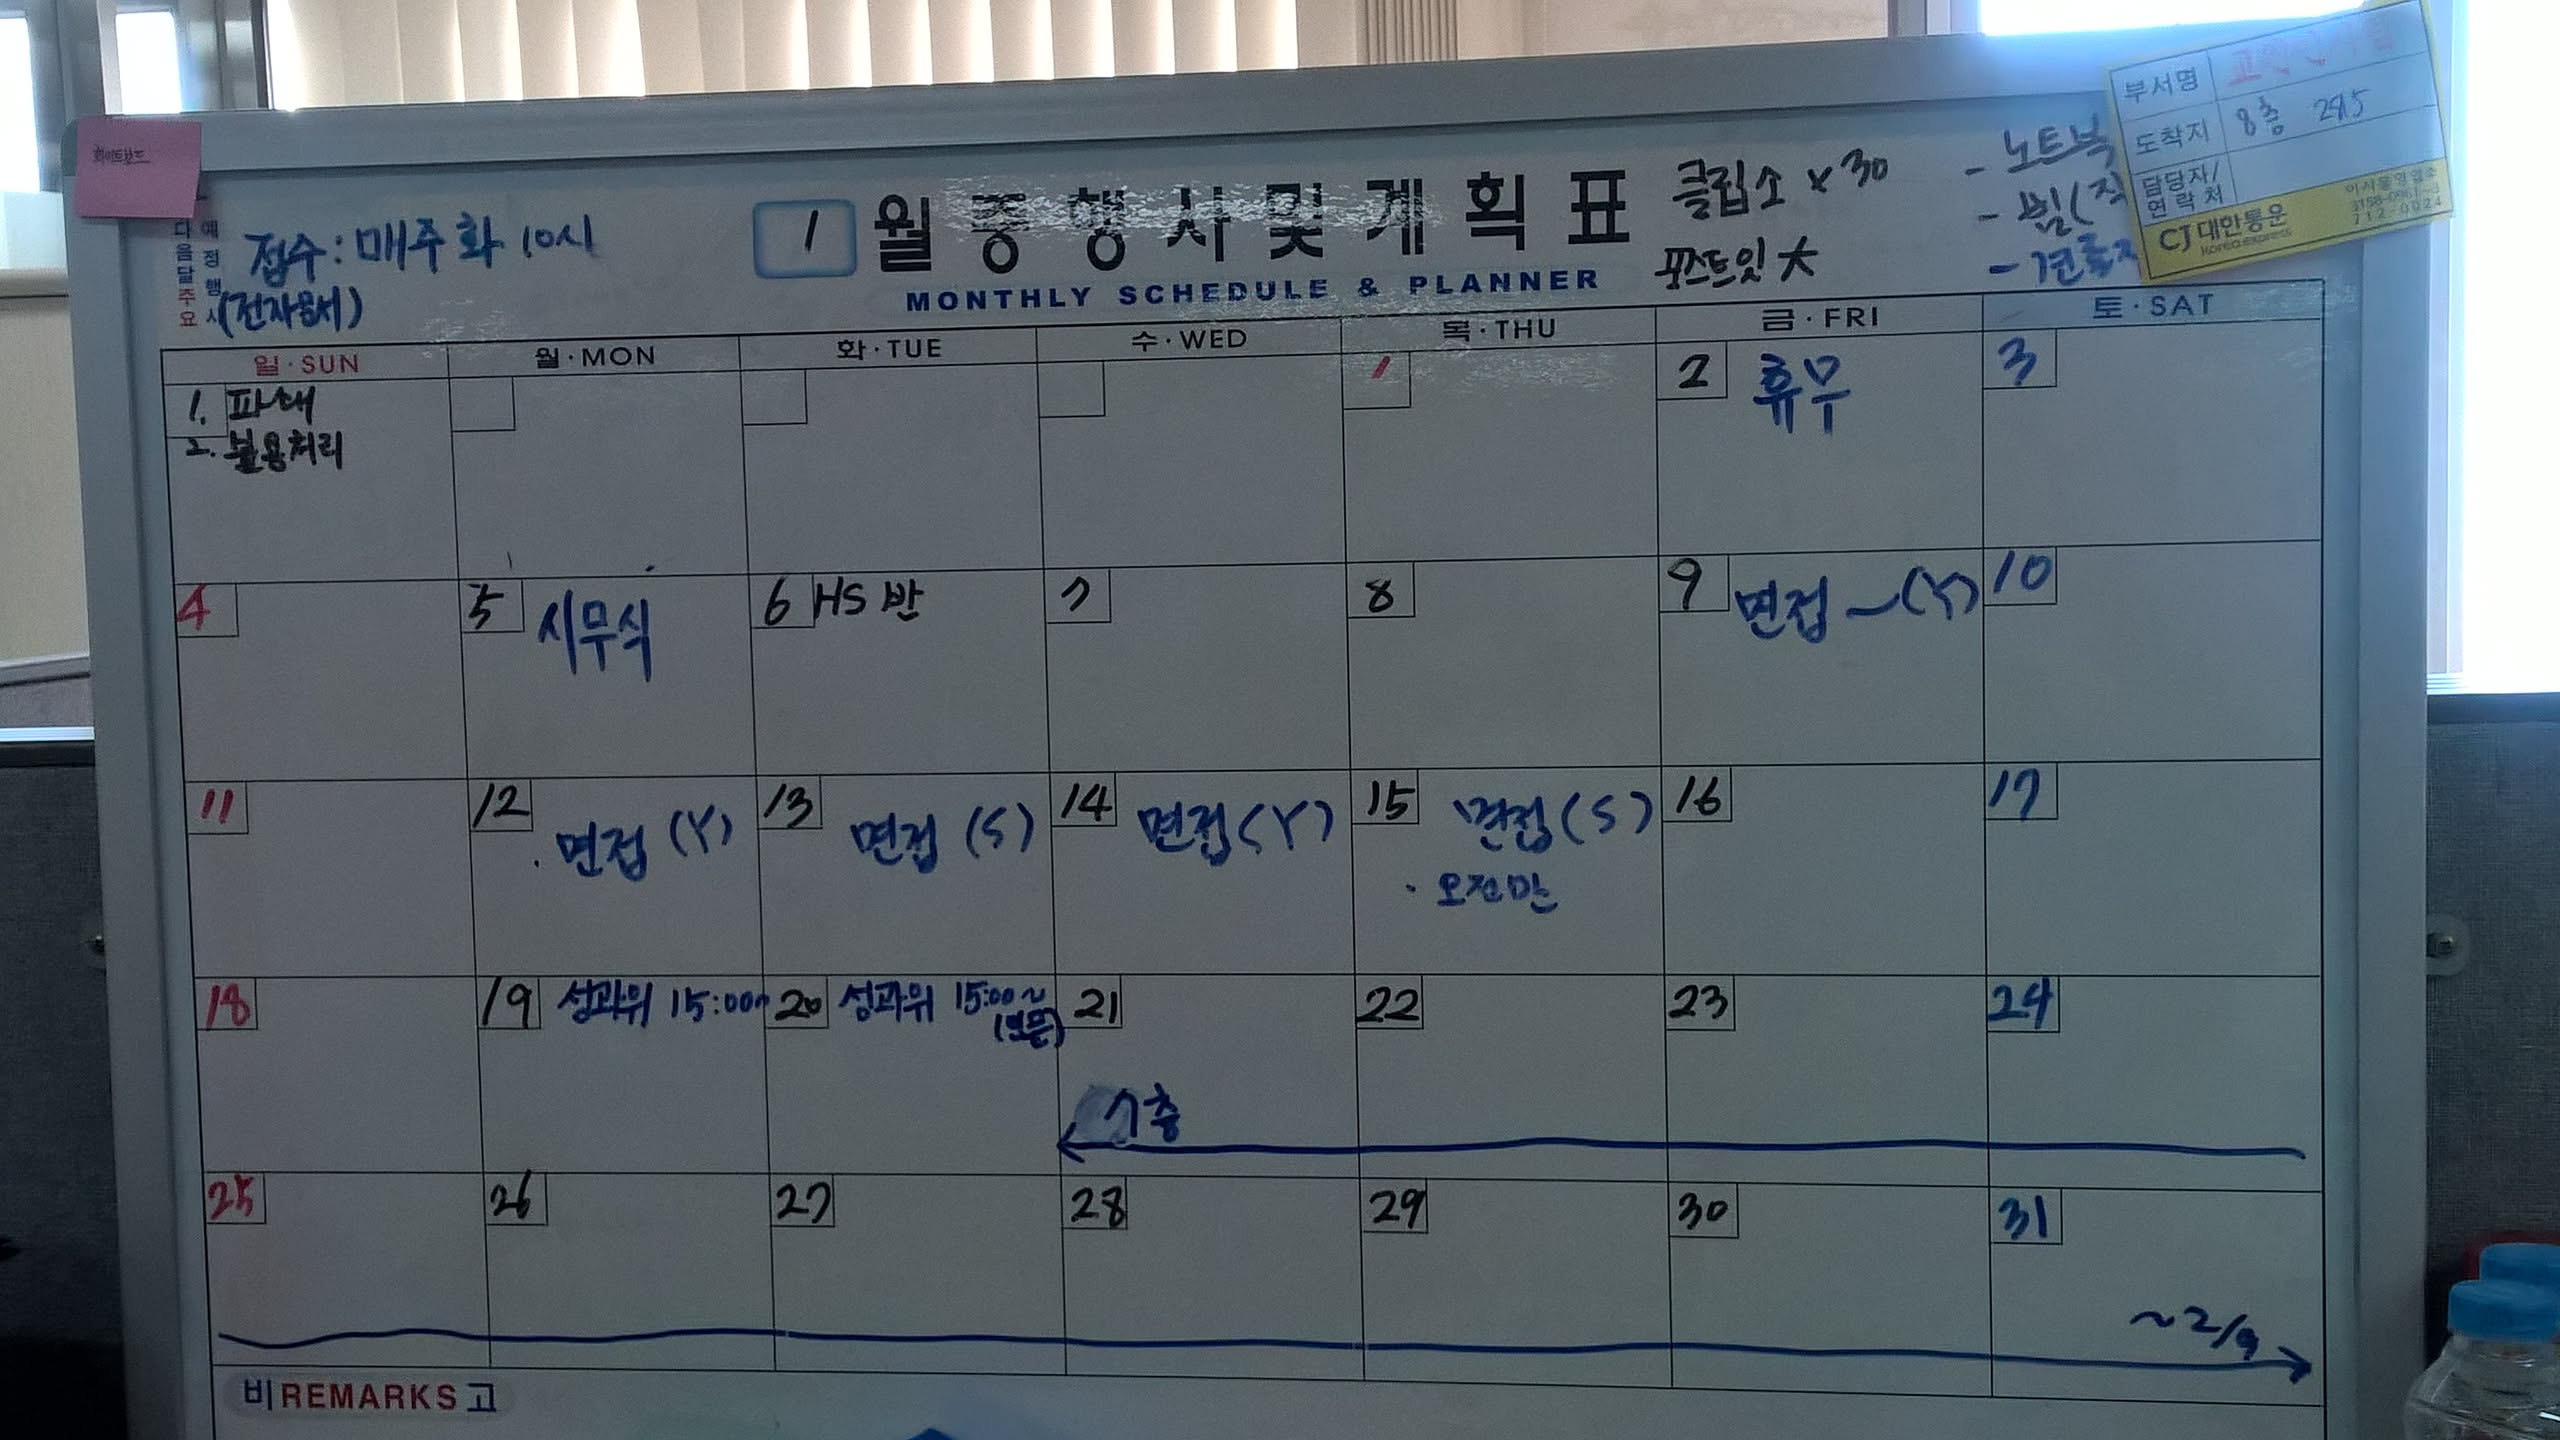 화이트보드
예정행사
다음달주요
접수 : 매주 화 10시
(전자문서)
1 월중행사및계획표
MONTHLY SCHEDULE & PLANNER
클립 소 x 30
포스트잇 大
- 노트북
-
-
부서명
도착지 8층 285
담당자/
연락처
CJ대한통운
korea express
일·SUN 월·MON 화·TUE 수·WED 목·THU 금·FRI 토·SAT
1. 파쇄
2. 불용처리
1
2 휴무
3
4
5 시무식
6 HS 반
7
8
9 면접 ~ (Y)
10
11
12 · 면접 (Y)
13 면접 (S)
14 면접 (Y)
15 면접 (S)
· 오전만
16
17
18
19 성과위 15:00~
20 성과위 15:00~
21
22
23
24
7층
25
26
27
28
29
30
31
~2/9
비 REMARKS 고